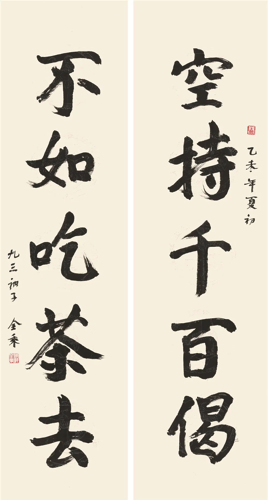 空持千百偈
乙未年夏初
不如吃茶去
九三衲子 全乘